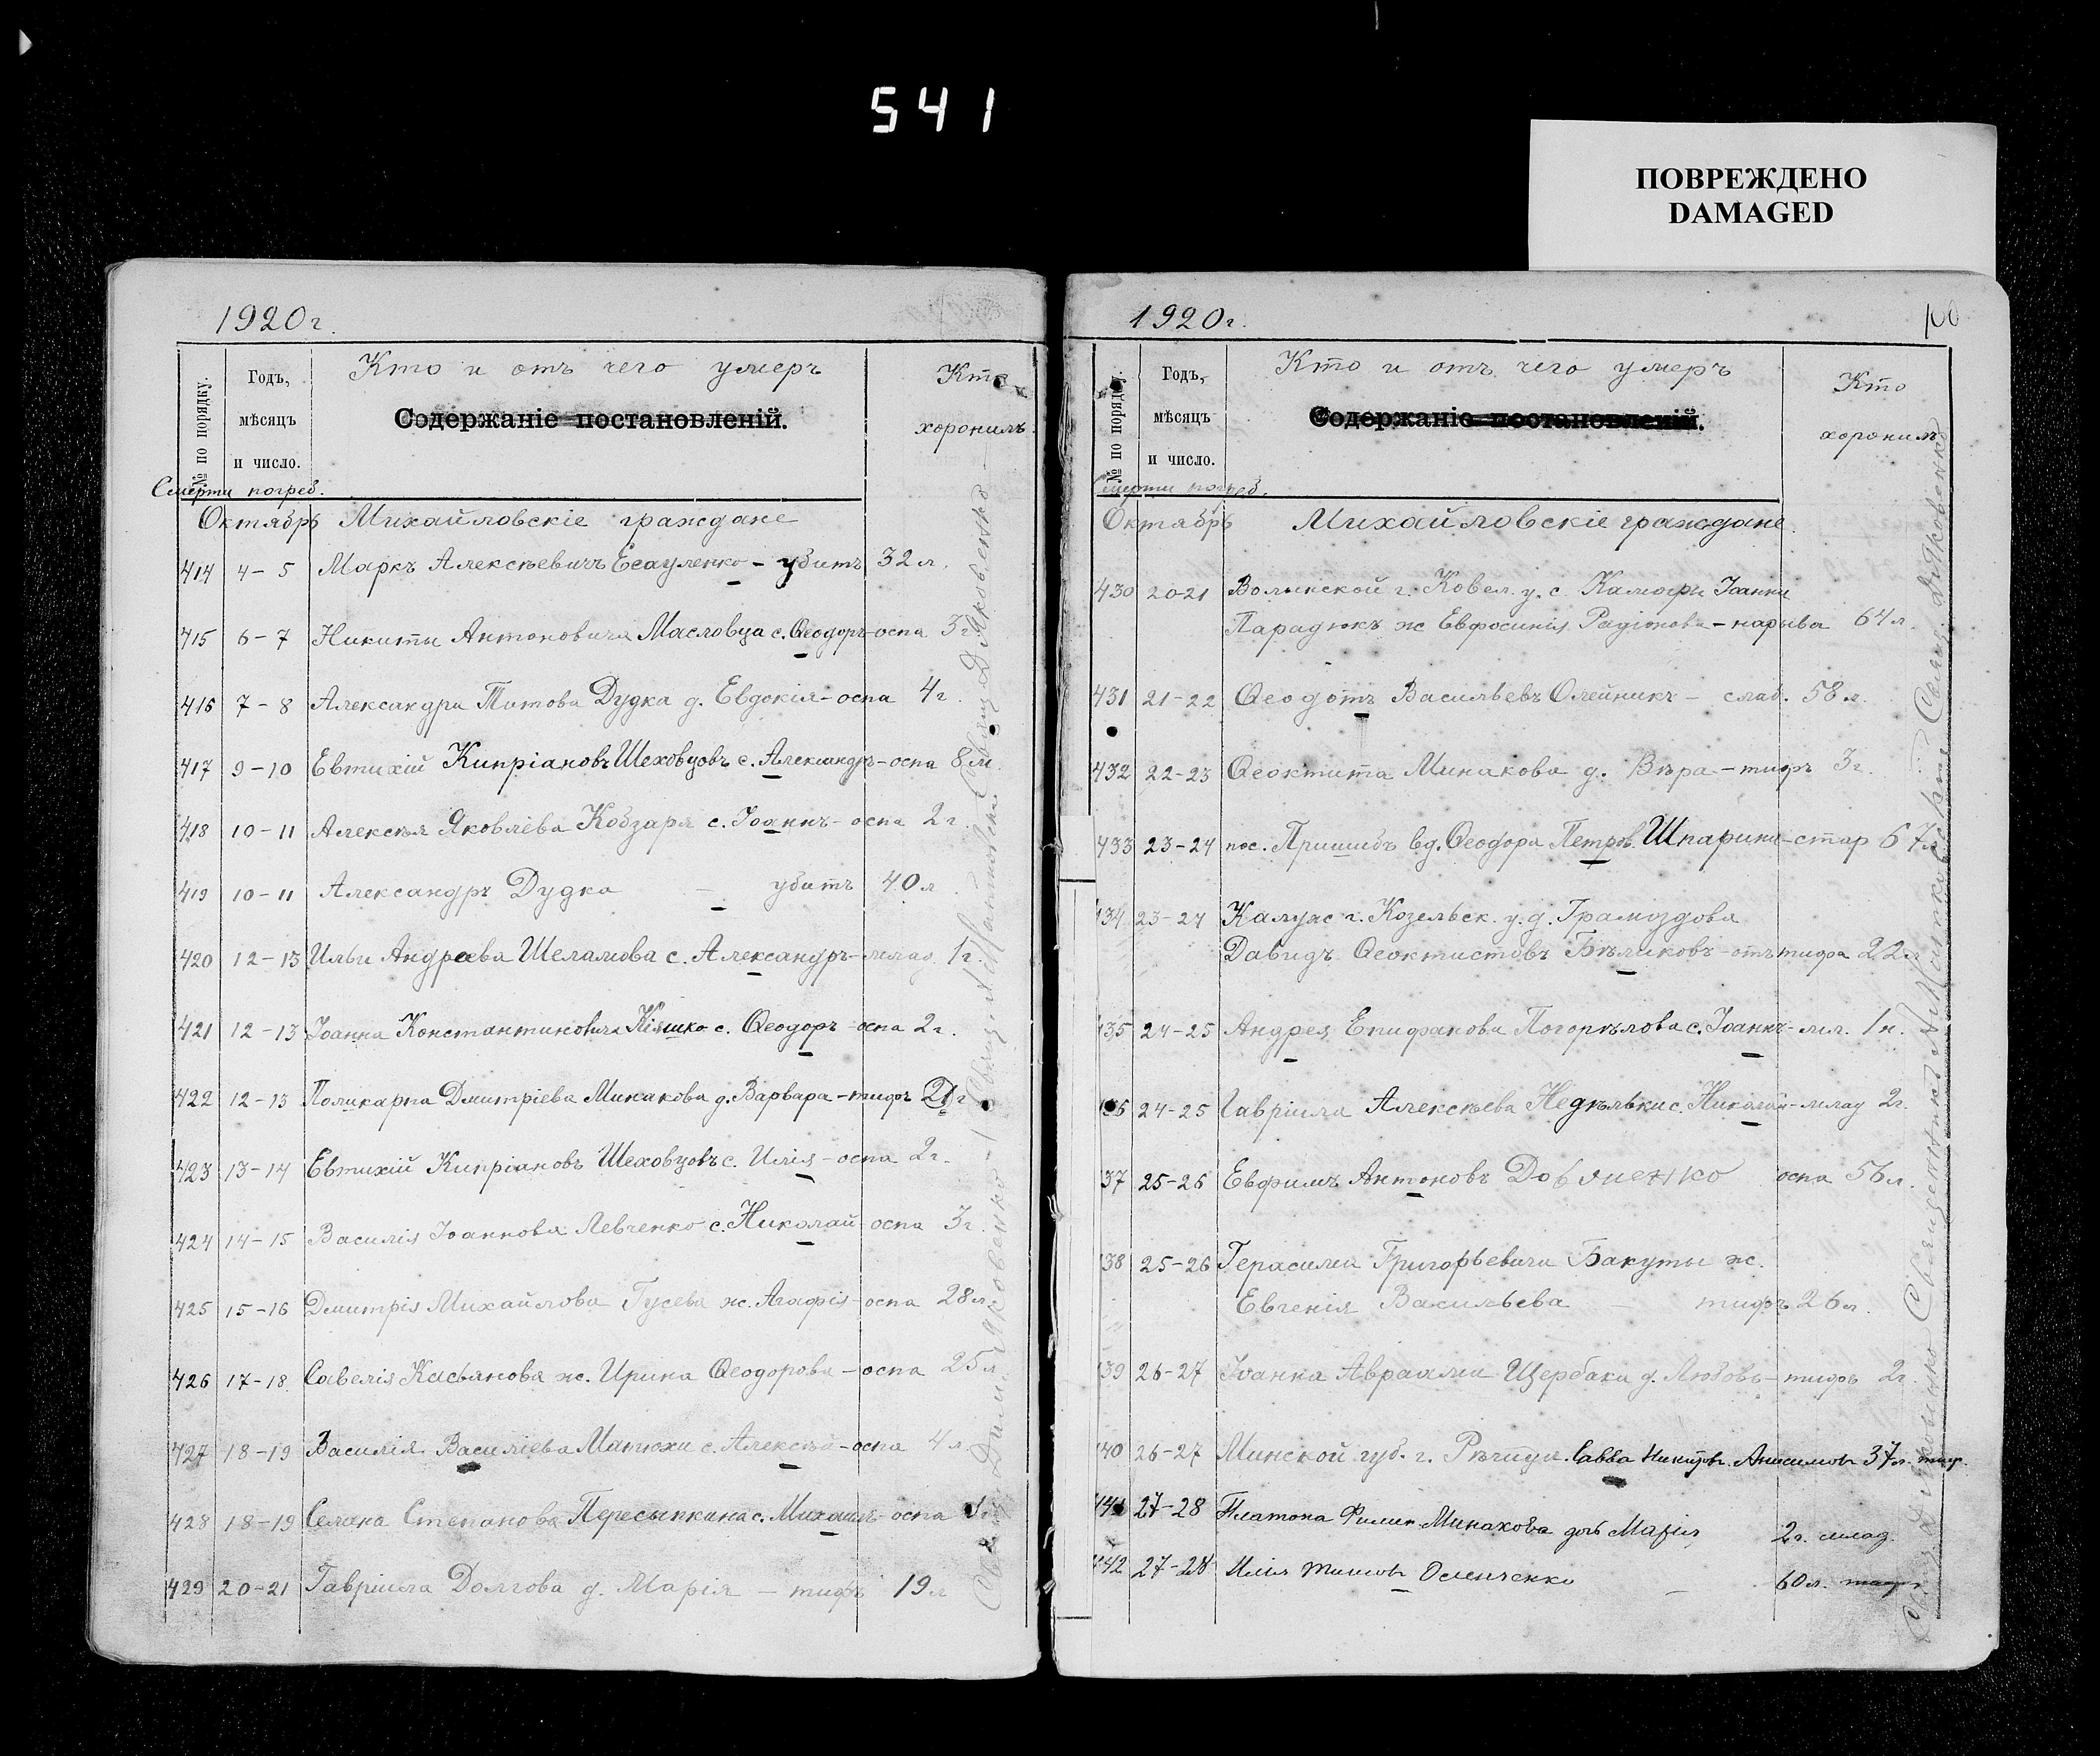 541
ПОВРЕЖДЕНО
DAMAGED
1920г.
№ по порядку.
Годъ,
мѣсяцъ
и число.
Кто и отъ чего умеръ
Содержаніе постановленій.
Кто
хоронилъ
Смерти погреб.
Октябрь Михайловскіе граждане
414 4-5 Маркъ Алексѣевичъ Есауленко - убитъ 32 л.
415 6-7 Никиты Антоновича Масловца с. Ѳеодоръ - оспа 3 г.
416 7-8 Александра Титова Дудка д. Евдокія - оспа 4 г.
417 9-10 Евтихій Кипріановъ Шеховцовъ с. Александръ - оспа 8 м.
418 10-11 Алексѣя Яковлева Кобзаря с. Іоаннъ - оспа 2 г.
419 10-11 Александръ Дудка - убитъ 40 л.
420 12-13 Ильи Андреева Шеламова с. Александръ - млад. 1 г.
421 12-13 Іоанна Константиновича Кіяшко с. Ѳеодоръ - оспа 2 г.
422 12-13 Поликарпа Дмитріева Минакова д. Варвара - тифъ г.
423 13-14 Евтихій Кипріановъ Шеховцовъ с. Илія - оспа 2 г.
424 14-15 Василія Іоаннова Левченко с. Николай - оспа 3 г.
425 15-16 Дмитрія Михайлова Гусева ж. Агафія - оспа 28 л.
426 17-18 Савелія Касьянова ж. Ирина Ѳеодорова - оспа 25 л.
427 18-19 Василія Василіева Матюхи с. Алексѣй - оспа 4 л.
428 18-19 Степанова Пересыпкина с. Михаилъ - оспа
429 20-21 Гавріила Долгова д. Марія - тифъ 19 л
Свящ. Д. Яковенко
1920г.
100
№ по порядку.
Годъ,
мѣсяцъ
и число.
Кто и отъ чего умеръ
Содержаніе постановленій.
Кто
хоронилъ
Смерти погреб.
Октябрь Михайловскіе граждане
430 20-21 Волынской г. Ковел. у. с. Іоанна
Парадюкъ ж Евфосинія Радіонова - нарыва 64 л.
431 21-22 Ѳеодотъ Васильевъ Олейникъ - слаб. 58 л.
432 22-23 Ѳеоктиста Минакова д. Вѣра - тифъ 3 г.
433 23-24 пос. Пришибъ вд. Ѳеодора Петров. Шпарина - стар 67 л
434 23-24 Калуж г. Козельск. у. д.
Давидъ Ѳеоктистовъ Бѣликовъ - отъ тифа 22 л
435 24-25 Андрея Епифанова Погорѣлова с. Іоаннъ - мл. 1 н.
436 24-25 Гавріила Алексѣева Недѣльки с. Николай - млад 2 г.
37 25-26 Евфимъ Антоновъ оспа 56 л.
38 25-26 Герасима Григорьевича Бакуты ж.
Евгенія Васильева - тифъ 26 л.
39 26-27 Іоанна Авраама Щербака д. Любовь - тифъ 2 г.
40 26-27 Минской губ. г. Рѣчицы. Савва Никитов. Анисимовъ 37 л. тиф.
441 27-28 Платона Филип Минакова дочь Марія 2 г. млад.
442 27-28 Илія Титовъ 60 л.
Свящ. Д. Яковенко